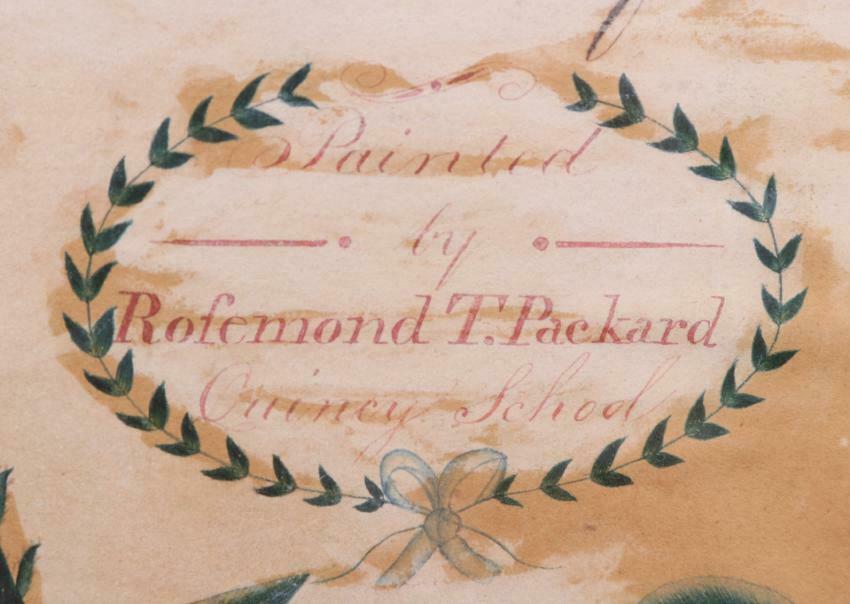 Painted
by
Roſemond T. Packard
Quincy School